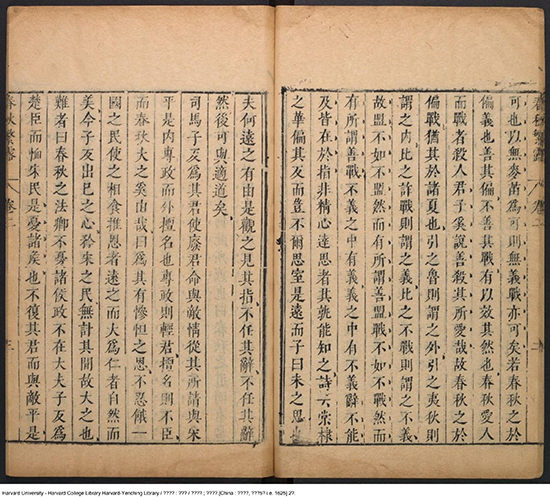 春秋繁露 卷二 二
可也以無麥苗為可則無義戰亦可矣若春秋之於
偏義也善其偏不善其戰有以效其然也春秋愛人
而戰者殺人君子奚說善殺其所愛哉故春秋之於
偏戰猶其於諸夏也引之魯則謂之外引之夷狄則
謂之内比之詐戰則謂之義比之不戰則謂之不義
故盟不如不盟然而有所謂善盟戰不如不戰然而
有所謂善戰不義之中有義義之中有不義辭不能
及皆在於指非精心達思者其孰能知之詩云棠棣
之華偏其反而豈不爾思室是遠而子曰未之思
夫何遠之有由是觀之見其指不任其辭不任其辭
然後可與適道矣
司馬子反為其君使廢君命與敵情從其所請與宋
平是内專政而外擅名也專政則輕君擅名則不臣
而春秋大之奚由哉曰為其有慘怛之恩不忍餓一
國之民使之相食推恩者遠之而大為仁者自然而
美今子反出己之心矜宋之民無計其間故大之也
難者曰春秋之法卿不憂諸侯政不在大夫子反為
楚臣而恤宋民是憂諸侯也不復其君而與敵平是
春秋繁露 卷二 三
Harvard University - Harvard College Library Harvard-Yenching Library / ???? : ??? / ???? ; ???? [China : ????, ???5? i.e. 1625] 27.